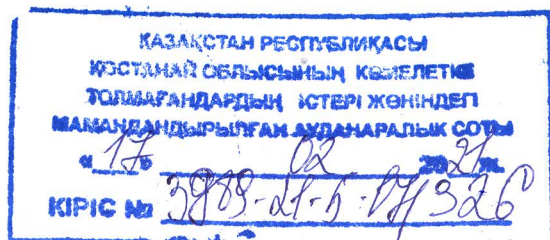 ҚАЗАҚСТАН РЕСПУБЛИКАСЫ
ҚОСТАНАЙ ОБЛЫСЫНЫҢ КӘМЕЛЕТКЕ
ТОЛМАҒАНДАРДЫҢ ІСТЕРІ ЖӨНІНДЕГІ
МАМАНДАНДЫРЫЛҒАН АУДАНАРАЛЫК СОТЫ
«17» 02 2021 ж.
КІРІС № 3989-21-5-17/326